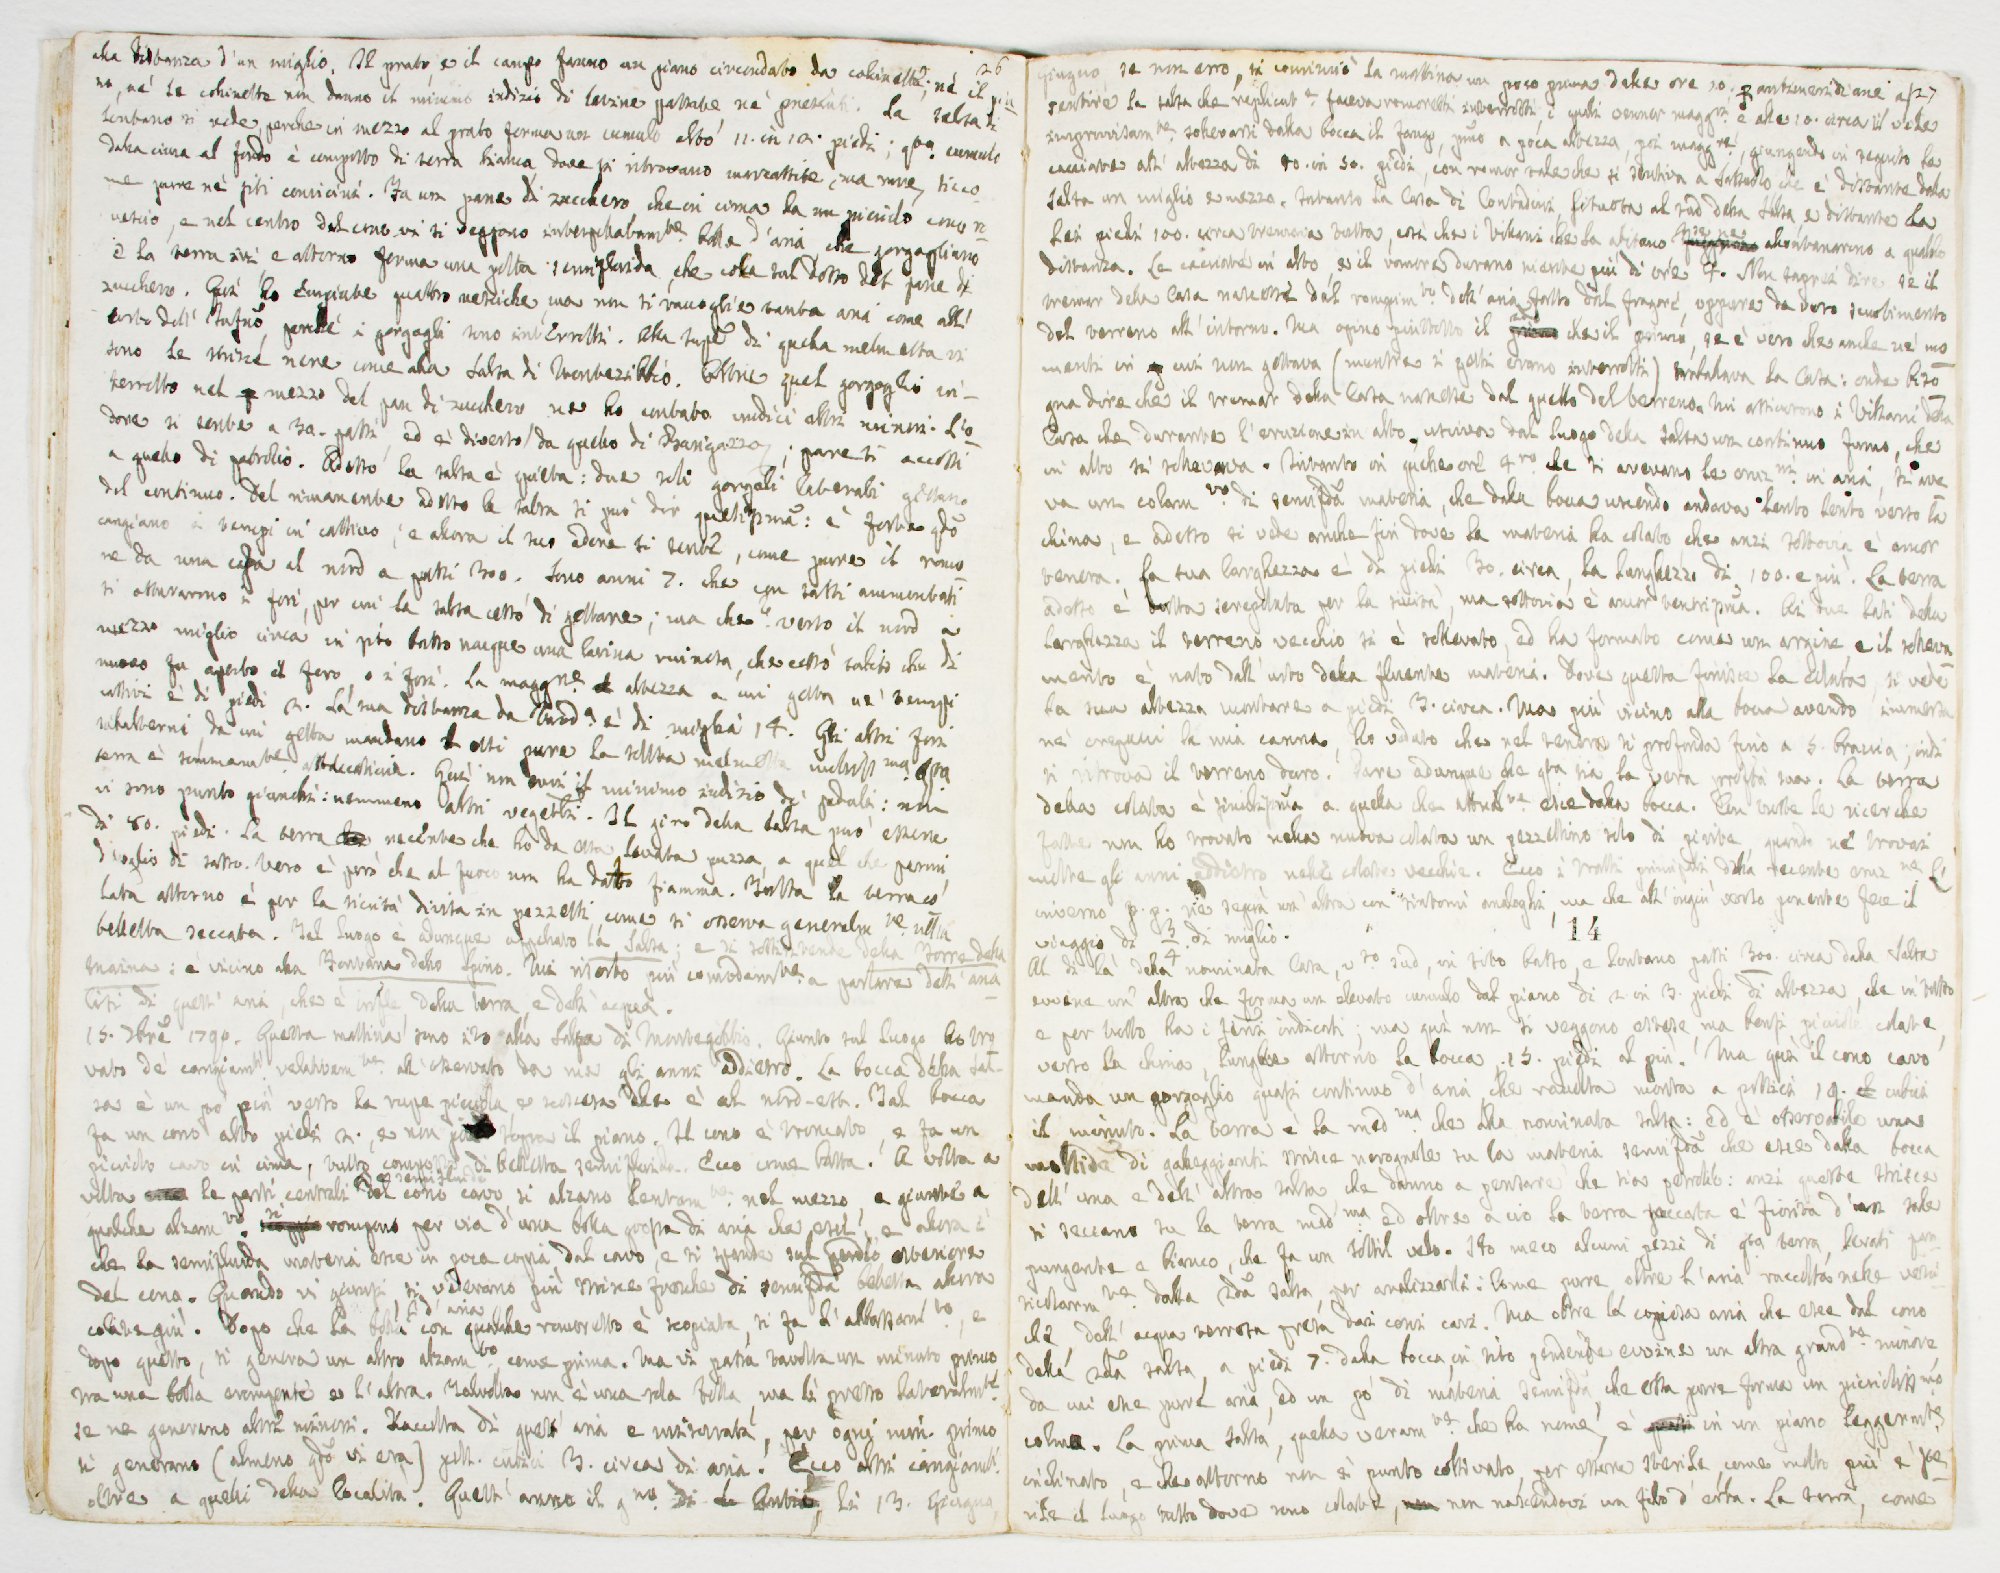 alla distanza d'un miglio. Il prato, e il campo fanno un piano circondato da collinette; nè il pia-
no, nè le collinette non danno il minimo indizio di lavine passate, nè presenti. La salsa di
lontano si vede, perche in mezzo al prato forma un cumulo alto 11. in 12. piedi; qto cumulo
dalla cima al fondo è composto di terra bianca, dove si ritrovano marcassite, ma rare, sicco-
me pure nè siti convicini. Fa un pane di zucchero che in cima ha un piccolo cono ro-
vescio, e nel centro del cono vi si veggono interpolatamte bolle d'aria che gorgogliano
e la terra ivi e attorno forma una poltta semifluida, che cola sul dosso del pane di
zucchero. Quì ho empiute quattro vesciche, ma non si raccoglie tanta aria come all'
perchè i gorgogli sono interrotti. Alla supe di quella melmetta vi
sono le strisce nere come alla Salsa di Montezibbio. Oltre quel gorgoglio in-
terrotto nel mezzo del pan di zucchero ne ho contato undici altri minori. L'o-
dore si sente a 30. passi, ed è diverso da quello di Barigazzo; pare si accosti
a quello di petrolio. Adesso la salsa è quieta: due soli gorgoli laterali gettano
del continuo. Del rimanente adesso la salsa si può dir quetissima: è forte qdo
cangiano i tempi in cattivo, e allora il suo odore si sente, come pure il romo-
re da una casa al nord a passi 300. Sono anni 7. che con sassi ammontati
si otturarono i fori, per cui la salsa cessò di gettare; ma che verso il nord a
mezzo miglio circa in sito basso nacque una lavina cessò subito che di
nuovo fu aperto il foro, o i fori. La maggre altezza a cui getta ne' tempi
cattivi è di piedi 2. La sua distanza da è di miglia 14. Gli altri fori
subalterni da cui getta mandano essi pure la solita melmetta
terra è sommamte attaccaticcia. Quì non evvi il minimo indizio di pedali: non
vi sono punto giunchi: nemmeno altri vegetbli. Il giro della salsa può essere
di 80. piedi. La terra recente che ho da essa levata puzza a quel che parmi
d'oglio di sasso. Vero è però che al fuoco non ha datto fiamma. Tutta la terra co-
lata attorno è per la siccità divisa in pezzetti come si osserva generalmte nella
belletta seccata. Tal luogo è adunque appellato la Salsa; e si sottintende della Torre della
Maina: è vicino alla Fontana dello Spino. Mi riserbo più comodamte a parlare dell'ana-
lisi di quest' aria, che è della terra, e dell' acqua.
15. 7bre 1790. Questa mattina sono ito alla Salsa di Montegibbio. Giunto sul luogo ho tro-
vato de' cangiamti relativamte all' osservato da me gli anni addietro. La bocca della sal-
sa è un po' più verso la rupe piccola, e scoscesa che è al nord-est. Tal bocca
fa un cono alto piedi 2., e non più sopra il piano. Il cono è troncato, e fa un
piccolo cavo in cima, tutto composto di belletta semifluida. Ecco come butta. A volta a
volta le parti centrali semifluide del cono cavo si alzano lentamte nel mezzo, e giunte a
qualche alzamto si rompono per via d'una bolla grossa di aria che esce, e allora è
che la semifluida materia esce in poca copia dal cavo, e si spande sul pendìo esteriore
del cono. Quando vi giunsi si vedevano più strisce fresche di semifda belletta allora
colate giù. Dopo che la bolla d'aria con qualche romoretto è scopiata, si fa l'abbassamto, e
dopo questo, si genera un altro alzamto come prima. Ma vi passa tavolta un minuto primo
tra una bolla erompente e l'altra. Talvolta non è una sola bolla, ma lì presso lateralmte
se ne generano altre minori. Raccolta di quest' aria e misurata, per ogni min. primo
si generano (almeno qdo vi era) poll. cubici 3. circa di aria. Ecco altri cangiamti
oltre a quelli della località. Quest' anno il gno di li 13. Giugno,
26
giugno se non erro, si cominciò la mattina un poco prima delle ore 10. antimeridiane a
sentire la salsa che faceva romoretti interrotti, i quali vennero maggri, e alle 10. circa si vide
improvisamte sollevarsi dalla bocca il fango, pmo a poca altezza, poi maggre, giungendo in seguito le
cacciate all' altezza di 40. in 50. piedi, con romor tale che si sentiva a Sassuolo che è distante dalla
Salsa un miglio e mezzo. Intanto la Casa di Contadini, situata al sud della Salsa e distante da
lei piedi 100. circa tremava tutta, così che i Villani che la abitano se ne allontanarono a qualche
distanza. Le cacciate in alto, e il romore durano niente più di ore 4. Non saprei dire se il
tremor della Casa nascesse dal rompimto dell' aria fatto dal fragore, oppure da vero scuotimento
del terreno all' intorno. Ma opino piuttosto il che il primo, se è vero che anche ne' mo-
menti in cui non gettava (mentre i getti erano interrotti) traballava la Casa: onde biso-
gna dire che il tremor della Casa nascesse dal quello del terreno. Mi assicurono i Villani della
Casa che durante l'eruzione in alto, usciva dal luogo della salsa un continuo fumo, che
in alto si sollevava. Intanto in quelle ore 4ro che si avevano le eruzni in aria, si ave-
va un colamto di semifda materia, che dalla bocca uscendo andava lento lento verso la
china, e adesso si vede anche fin dove la materia ha colato che anzi sottovia è ancor
tenera. La sua larghezza è di piedi 30. circa, la lunghezza di 100. e più. La terra
adesso è tutta screpolata per la siccità, ma sottovia è ancor tenerissima. Ai due lati della
larghezza il terreno vecchio si è sollevato, ed ha formato come un argine e il solleva-
mento è nato dall' urto della fluente materia. Dove questa finisce la colata, si vede
la sua altezza montare a piedi 3. circa. Ma più vicino alla bocca avendo immersa
nei crepacci la mia canna, ho veduto che nel tenero si profonda fino a 5. braccia; indi
si ritrova il terreno duro. Pare adunque che qta sia la vera profdità sua. La terra
della colata è simillissima a quella che attualmte esce dalla bocca. Con tutte le ricerche
fatte non ho trovato nella nuova colata un pezzettino solo di pirite, quando ne trovai
molte gli anni addietro nelle colate vecchie. Ecco i tratti principali della recente eruzne. L'
inverno p. p. ne seguì un' altra con sintomi analoghi, ma che all' ingiù verso ponente fece il
viaggio di 3/4 di miglio.
14
Al di là della nominata Casa, vso sud, in sito basso, e lontano passi 300. circa dalla Salsa
evvene un' altra che forma un elevato cumulo dal piano di 2. in 3. piedi di altezza, che in tutto
e per tutto ha i segni indicati; ma quì non si veggono estese, ma bensì picciole colate,
verso la china, lunghe attorno la bocca, 15. piedi al più. Ma quì il cono cavo
manda un gorgoglio quasi continuo d'aria, che raccolta monta a pollici 19. cubici
il minuto. La terra è la medma che alla nominata salsa: ed è osservabile una
moltidne di galleggianti strisce nerognole su la materia semifda che esce dalla bocca
dell' una e dell' altra salsa che danno a pensare che sia petrolio: anzi queste strisce
si seccano su la terra medma ed oltre a ciò la terra seccata è fiorita d'un sale
pungente e bianco, che fa un sottil velo. Ho meco alcuni pezzi di qta terra, levati par-
ticolarmte dalla 2da salsa, per analizzarli: Come pure oltre l'aria raccolta nelle vesci-
che, dell' acqua terrosa presa dai coni cavi. Ma oltre la copiosa aria che esce dal cono
della 2da salsa, a piedi 7. dalla bocca, in sito pendente evvine un altra grandte minore,
da cui esce pure aria, ed un po' di materia semifda, che essa pure forma un picciolissmo
colmo. La prima salsa, quella veramte che ha nome, è in un piano leggermte
inclinato, e che attorno non è punto coltivato, per essere sterile, come molto più è ste-
rile il luogo tutto dove sono colate, non nascendovi un filo d'erba. La terra, come
27